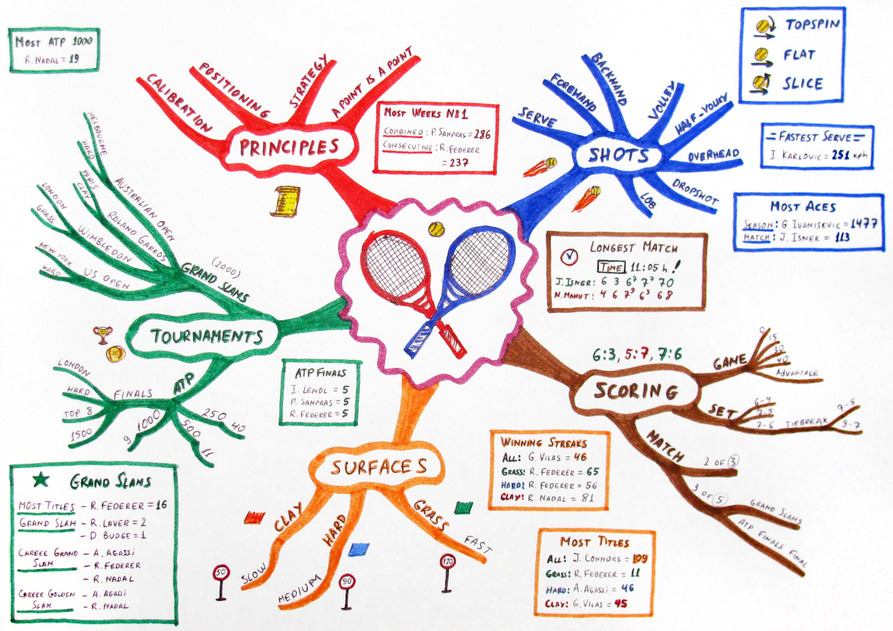 MOST ATP 1000
R. NADAL = 19
CALIBRATION
POSITIONING
STRATEGY
A POINT IS A POINT
PRINCIPLES
MOST WEEKS Nº1
COMBINED: P. SAMPRAS = 286
CONSECUTIVE: R. FEDERER
= 237
SERVE
FOREHAND
BACKHAND
VOLLEY
HALF-VOLLEY
OVERHEAD
DROPSHOT
LOB
SHOTS
TOPSPIN
FLAT
SLICE
= FASTEST SERVE =
I. KARLOVIC = 251 kph
MOST ACES
SEASON: G. IVANISEVIC = 1477
MATCH: J. ISNER = 113
LONGEST MATCH
TIME 11:05 h!
J. ISNER: 6 3 6⁷ 7⁷ 70
N. MAHUT: 4 6 7⁹ 6³ 68
MELBOURNE
HARD
AUSTRALIAN OPEN
PARIS
CLAY
ROLAND GARROS
LONDON
GRASS
WIMBLEDON
NEW YORK
HARD
US OPEN
GRAND SLAMS
(2000)
TOURNAMENTS
ATP
FINALS
LONDON
HARD
TOP 8
1500
1000
9
500
11
250
40
ATP FINALS
I. LENDL = 5
P. SAMPRAS = 5
R. FEDERER = 5
6:3, 5:7, 7:6
SCORING
GAME
0
15
30
40
ADVANTAGE
SET
6-4
7-5
7-6
TIEBREAK
7-5
9-7
MATCH
2 OF 3
3 OF 5
GRAND SLAMS
ATP FINALS FINAL
SURFACES
CLAY
SLOW
HARD
MEDIUM
GRASS
FAST
50
90
130
WINNING STREAKS
ALL: G. VILAS = 46
GRASS: R. FEDERER = 65
HARD: R. FEDERER = 56
CLAY: R. NADAL = 81
MOST TITLES
ALL: J. CONNORS = 109
GRASS: R. FEDERER = 11
HARD: A. AGASSI = 46
CLAY: G. VILAS = 45
GRAND SLAMS
MOST TITLES - R. FEDERER = 16
GRAND SLAM - R. LAVER = 2
- D. BUDGE = 1
CAREER GRAND SLAM - A. AGASSI
- R. FEDERER
- R. NADAL
CAREER GOLDEN SLAM - A. AGASI
- R. NADAL